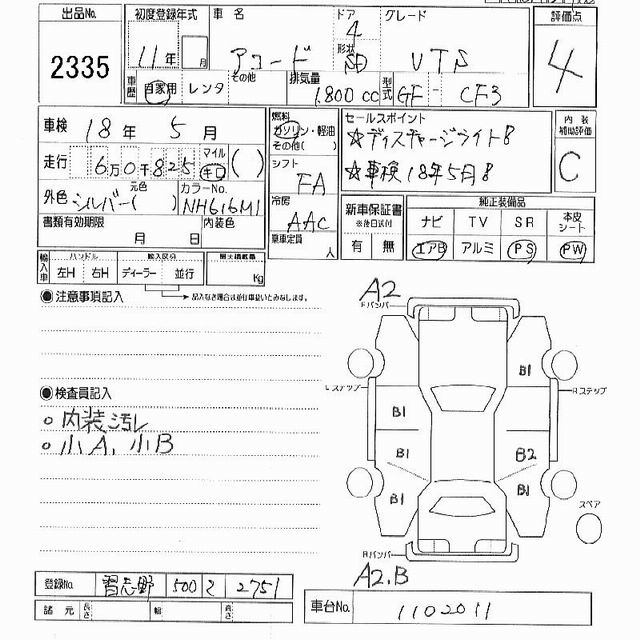 出品No. 初度登録年式 車名 ドア グレード 評価点
2335 11年 月 アコード 4 VTS 4
形状 SD
車歴 自家用 レンタ その他 排気量 1.800cc 型式 GF- CF3
車検 18年 5月 燃料 ガソリン・軽油 その他( ) セールスポイント 内装補助評価
☆ディスチャージライト8 C
走行 6万0千825 マイル キロ ( ) シフト FA ☆車検18年5月8
外色 シルバー 元色( ) カラーNo. NH616M1 冷房 AAC 新車保証書 ※後日送付 純正装備品
ナビ TV SR 本皮シート
書類有効期限 月 日 内装色 乗車定員 人 有 無 エアB アルミ PS PW
輸入車 ハンドル 左H 右H 輸入区分 ディーラー 並行 最大積載量 Kg
記入なき場合は並行車扱いとみなします。
注意事項記入 A2
Fバンパー
B1
Lステップ Rステップ
検査員記入 B1
○ 内装汚レ
○ 小A、小B B1 B2
B1 B1
スペア
Rバンパー
A2.B
登録No. 習志野 500 ミ 2751
諸元 長さ 幅 高さ 車台No. 1102011